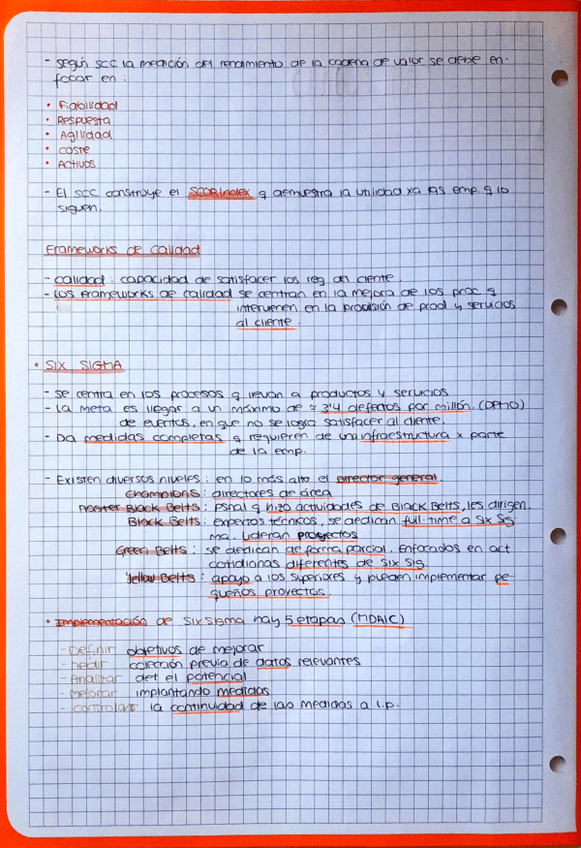 - según SCC la medición del rendimiento de la cadena de valor se debe en-
focar en :
• Fiabilidad
• Respuesta
• Agilidad
• Coste
• Activos
- El SCC construye el SCOR Index q demuestra la utilidad xa las emp. q lo
siguen.
Frameworks de Calidad
- Calidad : capacidad de satisfacer los req del cliente
- Los frameworks de calidad se centran en la mejora de los proc q
intervienen en la provisión de prod y servicios
al cliente.
• SIX SIGMA
- Se centra en los procesos q llevan a productos y servicios
- La meta es llegar a un máximo de ≈ 3'4 defectos por millón. (DPMO)
de eventos, en que no se logra satisfacer al cliente.
- Da medidas completas q requieren de una infraestructura x parte
de la emp.
- Existen diversos niveles : en lo más alto el Director general.
Champions : directores de área
Master Black Belts : psnal q hizo actividades de Black Belts, les dirigen.
Black Belts : expertos técnicos, se dedican full-time a Six Sig
ma. Lideran proyectos
Green Belts : se dedican de forma parcial. Enfocados en act
cotidianas diferentes de Six Sig.
Yellow Belts : apoyo a los superiores y pueden implementar pe-
queños proyectos.
• Implementación de Six Sigma hay 5 etapas (MDAIC)
- Definir objetivos de mejorar
- Medir colección previa de datos relevantes
- Analizar det el potencial
- Mejorar implantando medidas
- Controlar la continuidad de las medidas a l.p.